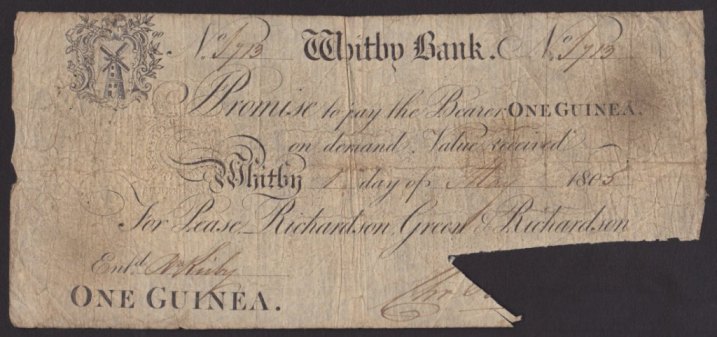 No. 1713 Whitby Bank. No. 1713
I Promise to pay the Bearer ONE GUINEA.
on demand Value received
Whitby 1st day of May 1805
For Pease Richardson Green & Richardson
Entd. Kirby
ONE GUINEA.